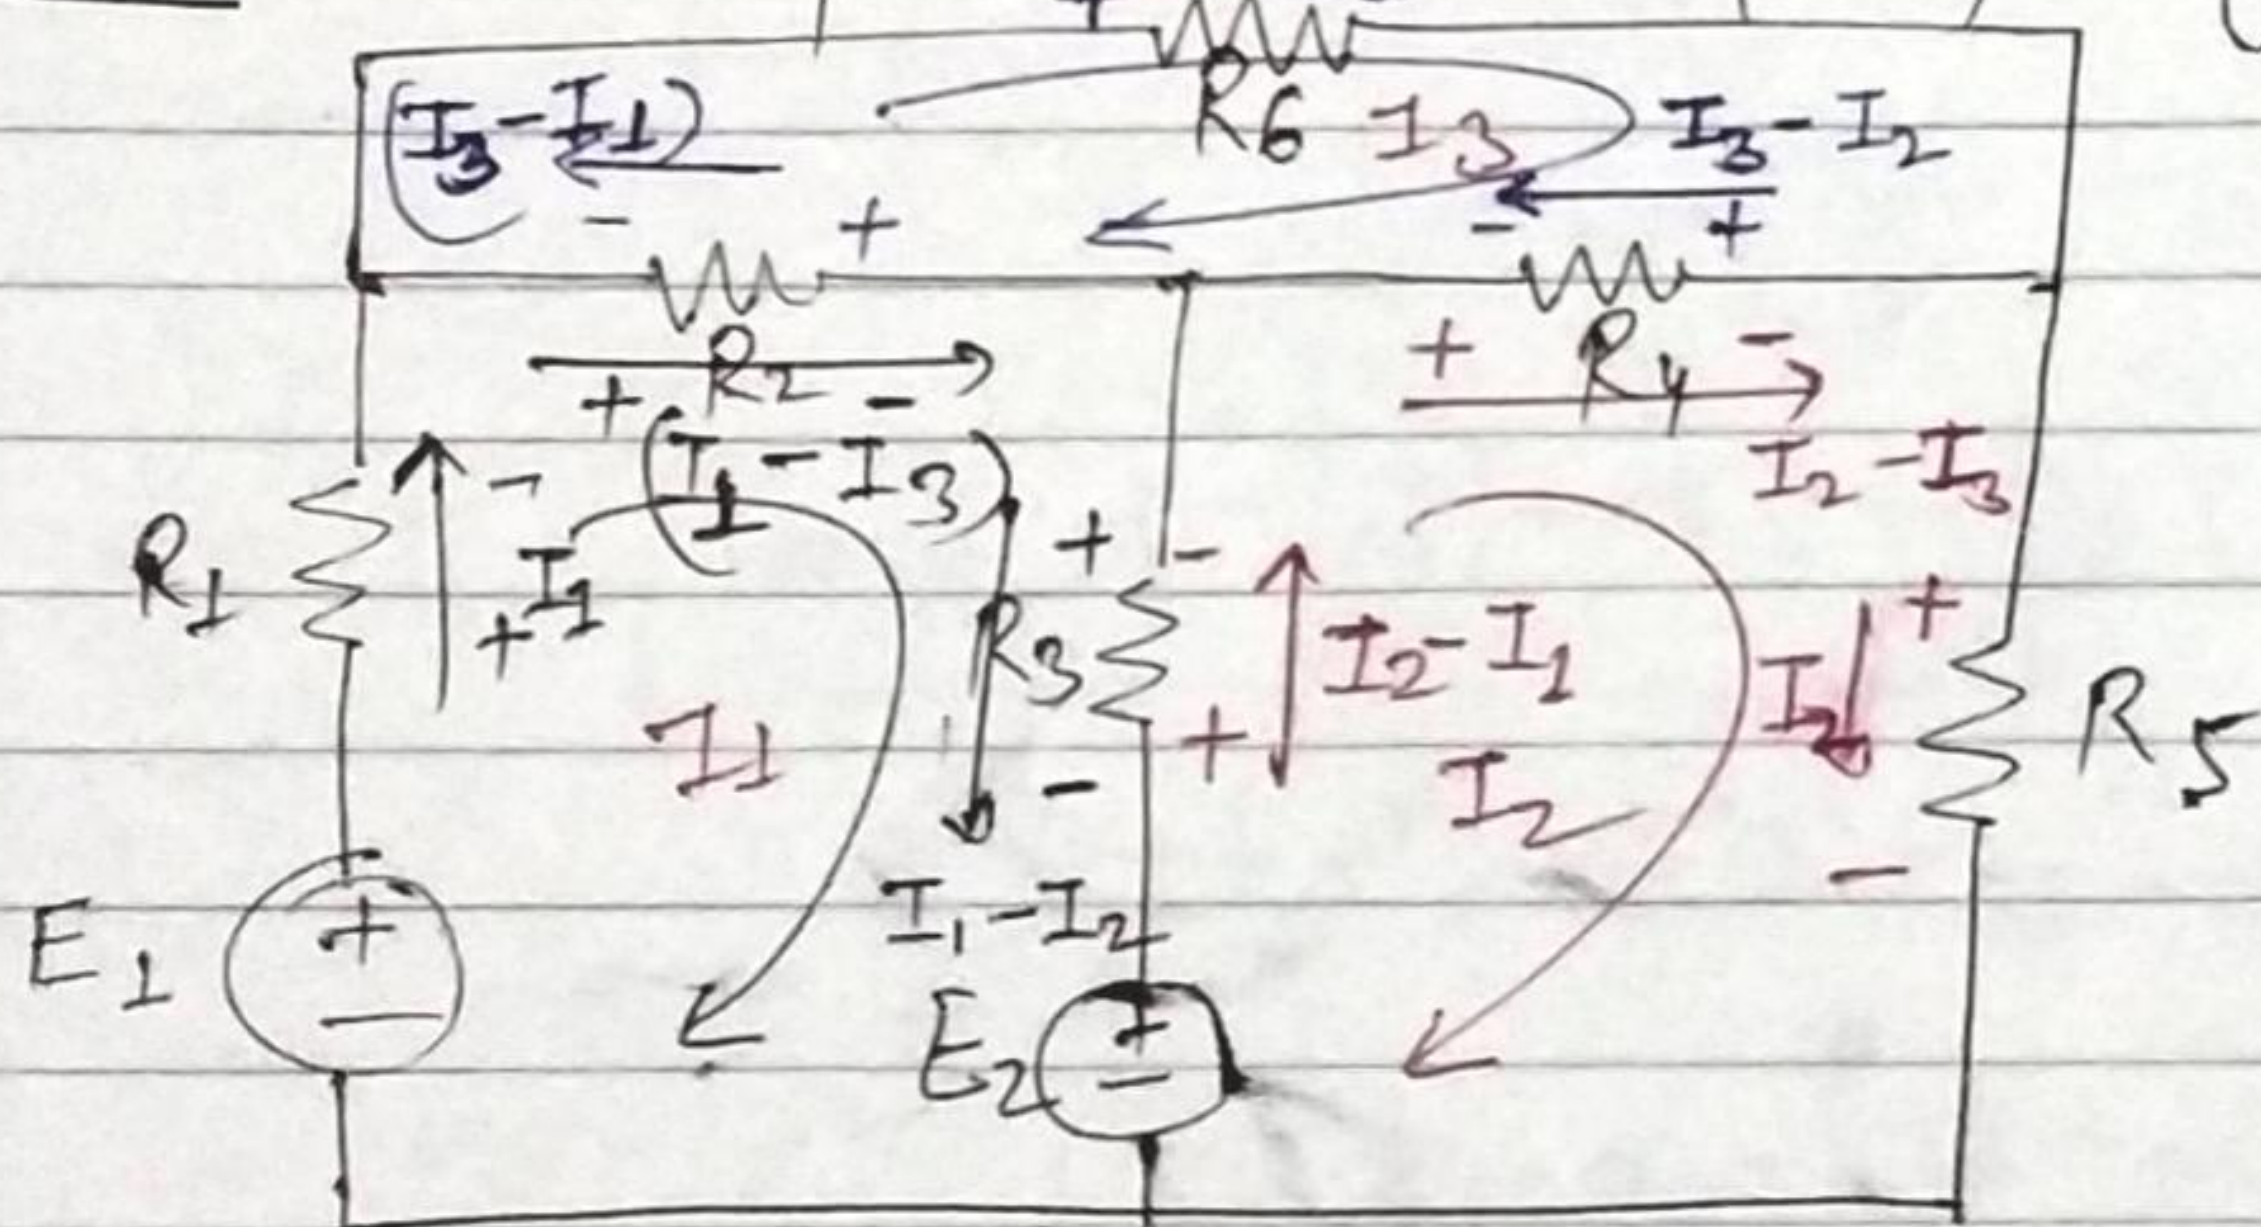 +
R6 I3
(I3-I1) I3-I2
- + - +
R2 + R4 -
+ -
(I1-I3) I2-I3
R1 - I1 + + -
R3 I2-I1 I2 + R5
I1 + I2
- -
I1-I2
E1 + -
E2 + -